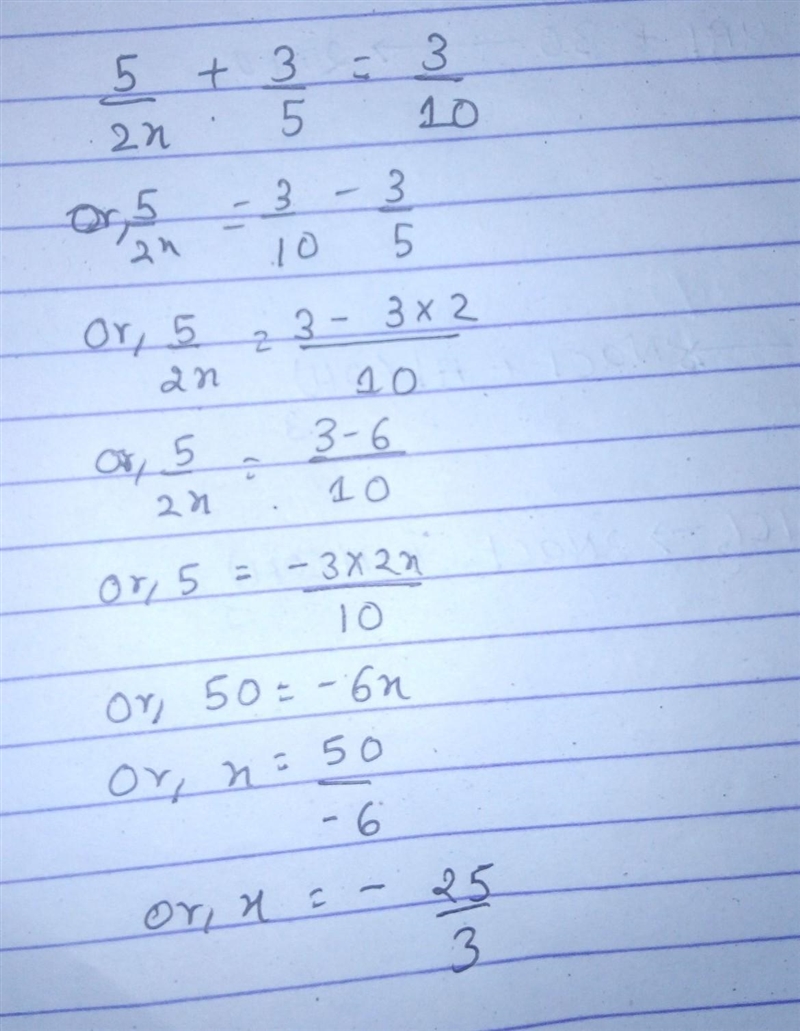 5/2x + 3/5 = 3/10
Or, 5/2x = 3/10 - 3/5
Or, 5/2x = (3 - 3×2)/10
Or, 5/2x = (3-6)/10
Or, 5 = (-3×2x)/10
Or, 50 = -6x
Or, x = 50/-6
Or, x = - 25/3